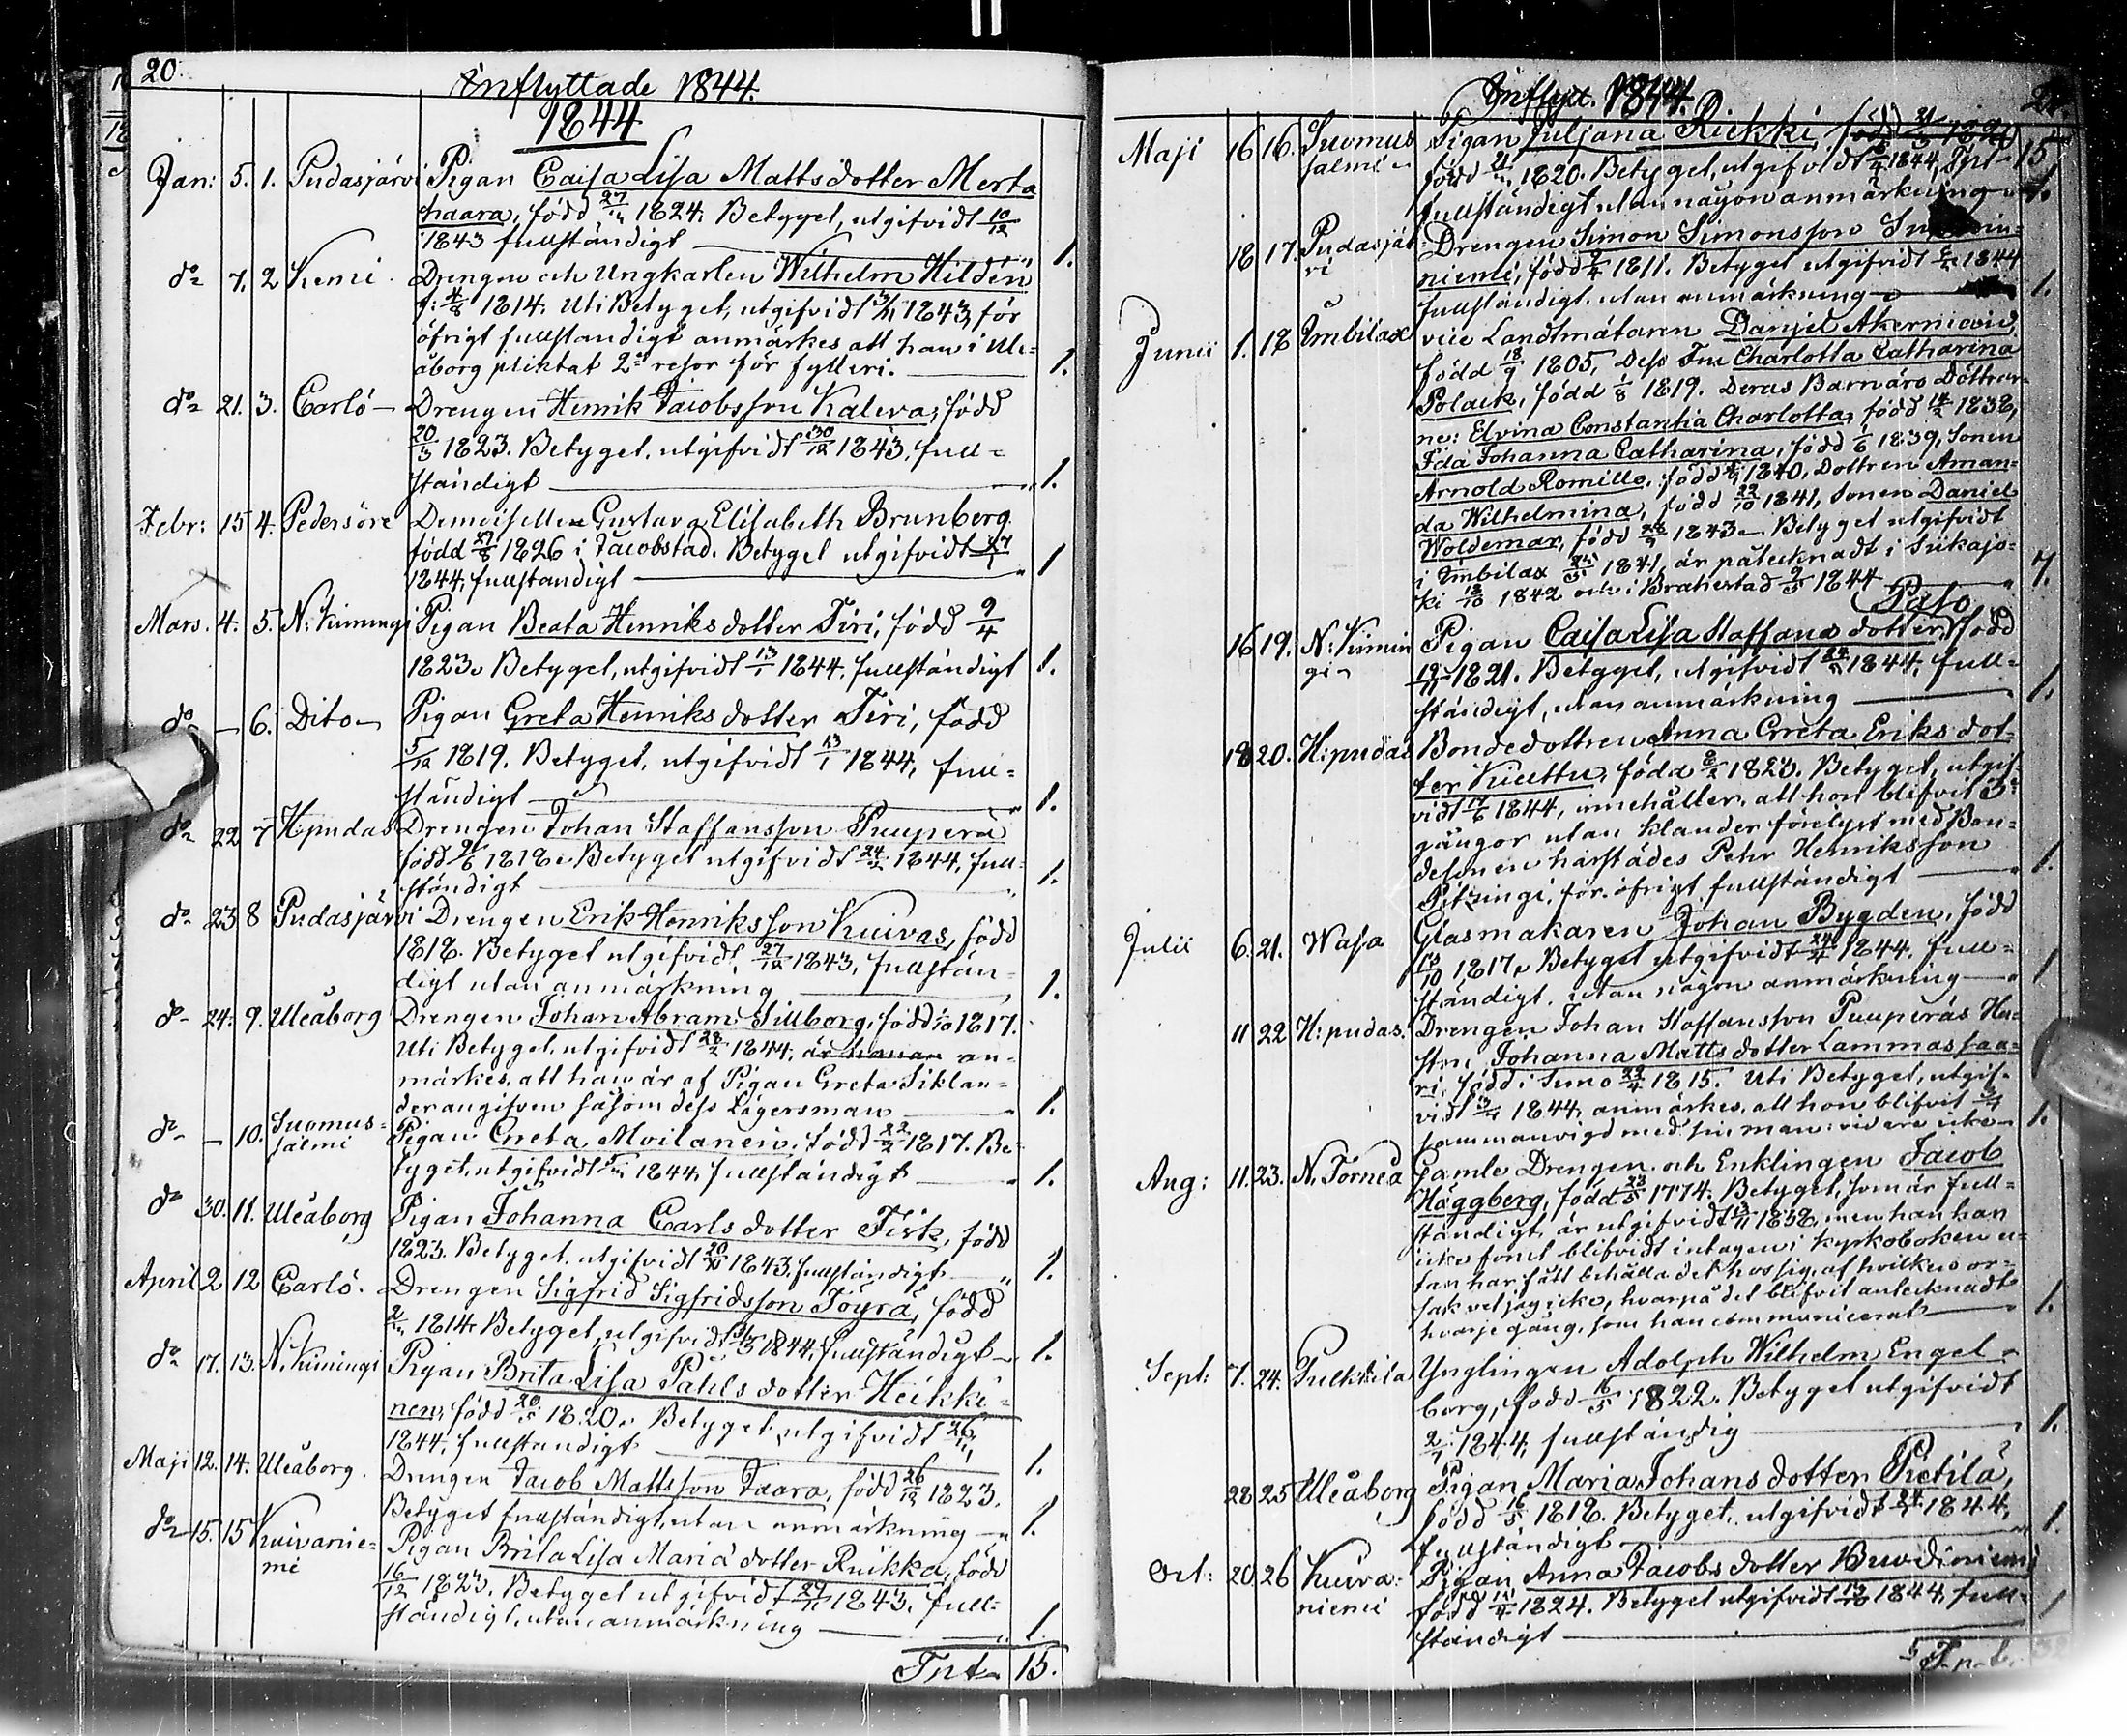 20.
Inflyttade 1844.
1844
Jan: 5. 1. Pudasjärvi Pigan Caisa Lisa Mattsdotter Merta
haara, född 27/12 1824. Betyget, utgifvidt 10/12
1843 fullständigt 1.
do 7. 2 Kemi Drengen och Ungkarlen Wilhelm Hildén
f: 4/8 1814. Uti Betyget, utgifvidt 1843, för
öfrigt fullständigt anmärkes att han i Ule-
åborg pliktat 2ne resor för fylleri. 1.
do 21. 3. Carlö Drengen Henrik Jacobsson Kaleva, född
20/3 1823. Betyget, utgifvidt 30/12 1843, full-
ständigt 1.
Febr: 15 4. Pedersöre Demoisellen Gustava Elisabeth Brunberg
född 29/8 1826 i Jacobstad. Betyget utgifvidt
1844, fullständigt 1
Mars. 4. 5. N: Kimingi Pigan Beata Henriksdotter Tiri, född 9/4
1823. Betyget, utgifvidt 13/1 1844. fullständigt 1.
do — 6. Dito Pigan Greta Henriksdotter Tiri, född
5/12 1819. Betyget, utgifvidt 13/1 1844, full-
ständigt 1.
do 22 7 H:pudas Drengen Johan Staffansson Puuperä
född 9/6 1818. Betyget utgifvidt 24/2 1844, full-
ständigt 1.
do 23 8 Pudasjärvi Drengen Erik Henriksson Kuivas, född
1818. Betyget utgifvidt 27/12 1843, fullstän-
digt utan anmärkning 1.
do 24. 9. Uleåborg Drengen Johan Abram Sillborg, född 1817.
Uti Betyget, utgifvidt 28/2 1844, är honom an-
märkes, att han är af Pigan Greta Siklan-
der angifven såsom dess Lägersman 1.
do — 10. Suomus-
salmi Pigan Greta Moilanen, född 22/2 1817. Be-
tyget, utgifvidt 1844, fullständigt 1.
do 30. 11. Uleåborg Pigan Johanna Carlsdotter Fisk, född
1823. Betyget utgifvidt 1843. fullständigt 1.
April 2 12 Carlö. Drengen Sigfrid Sigfridsson Töyrä, född
1814. Betyget, utgifvidt 1844, fullständigt 1.
do 17. 13. N. Kimingi Pigan Brita Lisa Påhlsdotter Heikki-
nen, född 1820. Betyget, utgifvidt
1844, fullständigt 1.
Maji 12. 14. Uleåborg. Drengen Jacob Mattsson Jaara, född 26/12 1823.
Betyget fullständigt, utan anmärkning 1.
do 15. 15 Kuivanie-
mi Pigan Brita Lisa Mariä dotter Ruikka, född
16/12 1823. Betyget utgifvidt 29/11 1843. full-
ständigt, utan anmärkning 1
Trt 15.
Inflytt. 1844.
Maji 16 16. Suomus
salmi Pigan Juljana Riekki, född
född 1820. Betyget, utgifvidt 1844, Trt 15
fullständigt utan någon anmärkning 1.
18 17. Pudasjär-
vi Drengen Simon Simonsson
niemi, född 9/4 1811. Betyget utgifvidt 1844
fullständigt utan anmärkning 1.
Junii 1. 18 Imbilax vice Landtmätaren Danjel Akerniovid,
född 18/9 1805, Dess Fru Charlotta Catharina
Polack, född 1/8 1819. Deras Barn äro Döttrar-
ne: Elvina Constantia Charlotta, född 14/2 1838,
Ida Johanna Catharina, född 1/6 1839, Sonen
Arnold Romillo, född 1840, Dottren Aman-
da Wilhelmina, född 22/10 1841, Sonen Daniel
Woldemar, född 1843. Betyget utgifvidt
i Imbilax 1841, är påtecknadt i Siikajo-
ki 13/10 1842 och i Brahestad 9/5 1844 7.
Paso
16 19. N: Kiimin
gi Pigan Caisa Lisa Staffansdotter, född
19/11 1821. Betyget, utgifvidt 1844, full-
ständigt, utan anmärkning 1.
18 20. H:pudas Bondedottren Anna Greta Eriksdot-
ter Kuuttu, född 8/2 1823. Betyget, utgif-
vidt 17/6 1844, innehåller, att hon blifvit 3
gångor utan klander förelyst med Bon-
desonen härstädes Pehr Henriksson
för öfrigt fullständigt 1.
Julii 6. 21. Wasa Glasmakaren Johan Bygden, född
13/10 1817. Betyget utgifvidt 24/4 1844. full-
ständigt, utan någon anmärkning 1
11 22 H:pudas. Drengen Johan Staffansson Puuperäs Hu-
stru Johanna Mattsdotter Lammassaa-
ri, född i Simo 22/4 1815. Uti Betyget, utgif-
vidt 1844, anmärkes, att hon blifvit
sammanvigd med sin man: vidare icke 1.
Aug: 11. 23. N. Torneå Gamle Drengen och Enklingen Jacob
Häggberg, född 23/5 1774. Betyget, som är full-
ständigt, är utgifvidt 13/11 1838, men han han
icke förut blifvidt intagen i kyrkoboken u-
tan har fått behålla det hos sig, af hvilken or-
sak vet jag icke, hvarpå det blifvit antecknadt
hvarje gång, som han communicerat 1.
Sept: 7. 24. Pulkkila Ynglingen Adolph Wilhelm Engel-
berg, född 16/5 1822. Betyget utgifvidt
2/7 1844, fullständig 1.
28 25 Uleåborg Pigan Maria Johansdotter Pietilä,
född 16/5 1818. Betyget, utgifvidt 1844,
fullständigt 1.
Oct: 20 26 Kuiva-
niemi Pigan Anna Jacobsdotter
född 1824. Betyget utgifvidt 1844, full-
ständigt 1
Trt